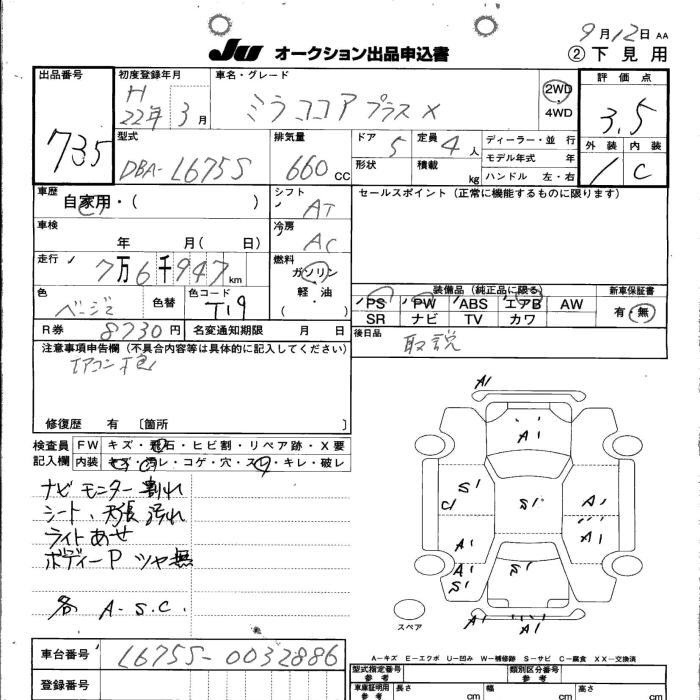 9月12日 AA
JU オークション出品申込書 ②下見用
出品番号 初度登録年月 車名・グレード 評価点
735 H 22年 3月 ミラココア プラス X 2WD 4WD 3.5
外装 内装
1 C
型式 排気量 ドア 定員 ディーラー・並行
DBA-L675S 660cc 5 4人 モデル年式 年
形状 積載 kg ハンドル 左・右
車歴 自家用・( ) シフト AT セールスポイント(正常に機能するものに限ります)
車検 年 月( 日) 冷房 AC
走行 7万6千947km 燃料 ガソリン 軽・油 ( )
色 ベージュ 色替 色コード T19
装備品(純正品に限る) 新車保証書
PS PW ABS エアB AW 有・無
SR ナビ TV カワ
R券 8730円 名変通知期限 月 日 後日品 取説
注意事項申告欄(不具合内容等は具体的に記入してください)
修復歴 有 〔箇所 〕
検査員 FW キズ・飛石・ヒビ割・リペア跡・X要
記入欄 内装 キズ・汚レ・コゲ・穴・スレ・キレ・破レ
ナビ モニター 割れ
シート、天張 汚れ
ライトあせ
ボディーP ツヤ無
各 A.S.C.
A1
A1
S1 S1 A1
C1
A1 A1
A1 S1
S1
スペア
A1 A1
A-キズ E-エクボ U-凹み W-補修跡 S-サビ C-腐食 XX-交換済
車台番号 L675S-0032886
型式指定番号 類別区分番号
登録番号 車庫証明用参考 長さ cm 幅 cm 高さ cm